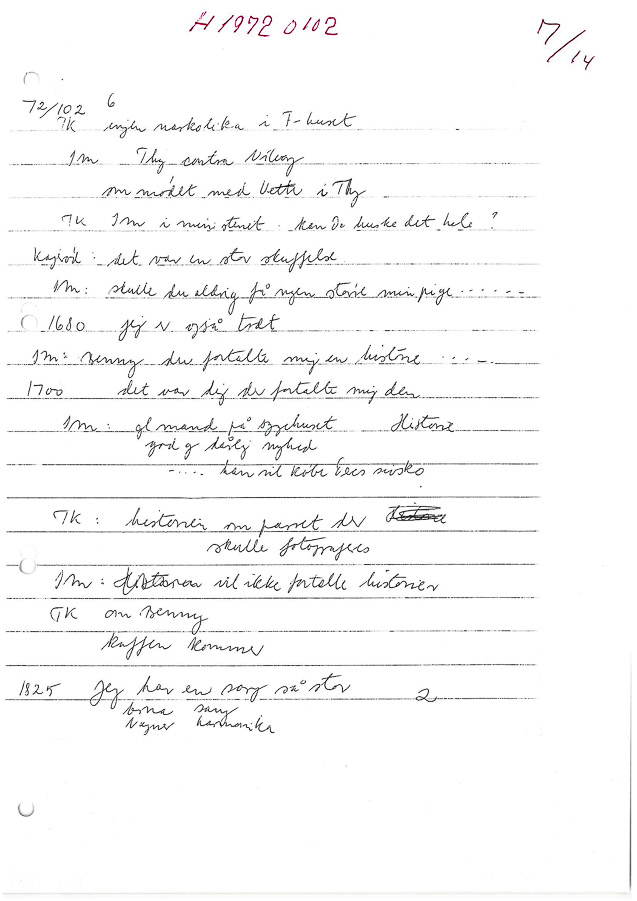 H 1972 0102
7/14
72/102 6
TK ingen narkotika i F-huset
IM Thy contra
om mødet med Vette i Thy
TK IM i ministeriet. Kan du huske det hele?
: det var en stor skuffelse
IM: skulle du aldrig få min pige ......
1680 jeg v. også træt
IM: Benny du fortalte mig en historie ....
1700 det var dig der fortalte mig den
IM: gl mand på sygehuset Historie
god og dårlig nyhed
..... han vil købe sivsko
TK: historien om passet der
skulle fotograferes
IM: vil ikke fortælle historier
TK om Benny
kaffen kommer
1825 Jeg har en sorg så stor 2
sang
harmonika